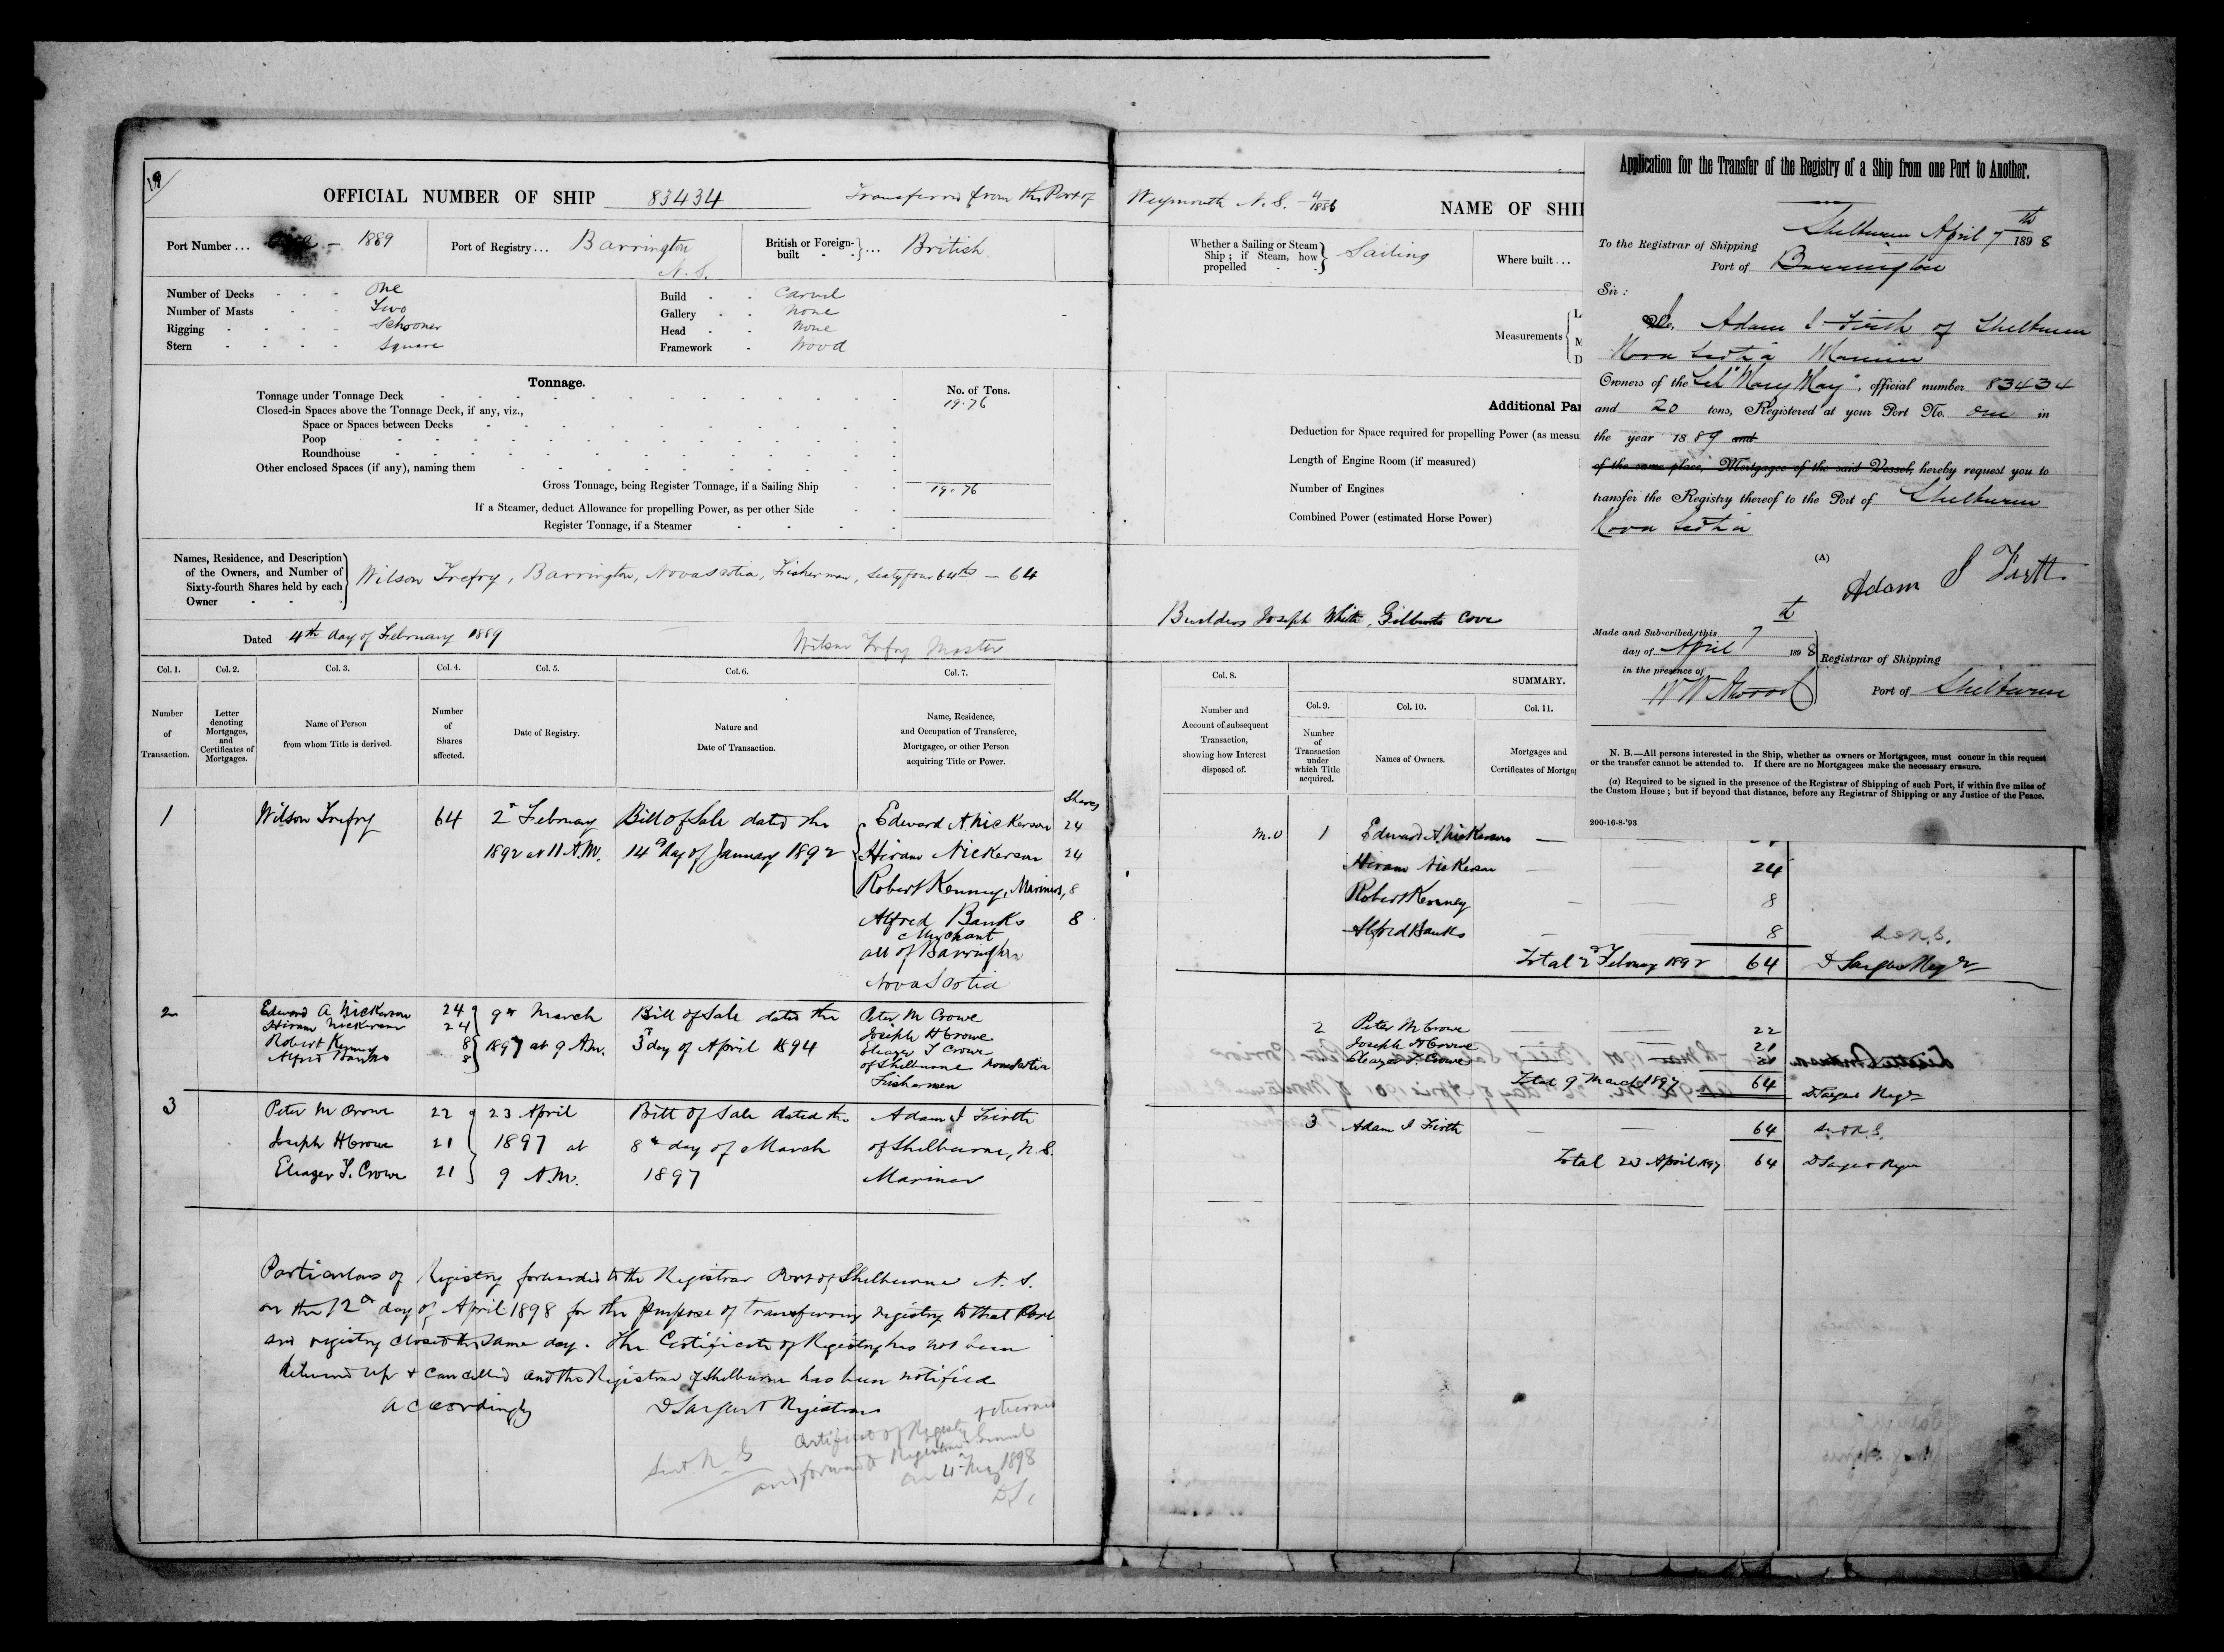 19
OFFICIAL NUMBER OF SHIP 83434 Transferred from the Port of
Port Number ... 1889 Port of Registry ... Barrington N.S. British or Foreign-built ... British
Number of Decks One
Number of Masts Two
Rigging Schooner
Stern Square
Build Carvel
Gallery None
Head None
Framework Wood
Tonnage. No. of Tons.
Tonnage under Tonnage Deck 19.76
Closed-in Spaces above the Tonnage Deck, if any, viz.,
Space or Spaces between Decks
Poop
Roundhouse
Other enclosed Spaces (if any), naming them
Gross Tonnage, being Register Tonnage, if a Sailing Ship 19.76
If a Steamer, deduct Allowance for propelling Power, as per other Side
Register Tonnage, if a Steamer
Names, Residence, and Description
of the Owners, and Number of
Sixty-fourth Shares held by each
Owner
Wilson Trefry, Barrington, Nova Scotia, Fisherman, Sixty four 64ths — 64
Dated 4th day of February 1889 Wilson Trefry Master
Col. 1. Col. 2. Col. 3. Col. 4. Col. 5. Col. 6. Col. 7.
Number of Transaction.
Letter denoting Mortgages, and Certificates of Mortgages.
Name of Person from whom Title is derived.
Number of Shares affected.
Date of Registry.
Nature and Date of Transaction.
Name, Residence, and Occupation of Transferee, Mortgagee, or other Person acquiring Title or Power.
Shares
1 Wilson Trefry 64 2d February Bill of Sale dated the Edward A Nickerson 24
1892 at 11 A.M. 14th day of January 1892 Hiram Nickerson 24
Robert Kenney, Mariners, 8
Alfred Banks 8
Merchant
all of Barrington
Nova Scotia
2 Edward A Nickerson 24 9th March Bill of Sale dated the Peter M Crowe
Hiram Nickerson 24 Joseph H Crowe
Robert Kenney 8 1897 at 9 A.M. 3d day of April 1894 Eleazer T Crowe
Alfred Banks 8 of Shelburne Nova Scotia
Fishermen
3 Peter M Crowe 22 23 April Bill of Sale dated the Adam I Firth
Joseph H Crowe 21 1897 at 8th day of March of Shelburne, N.S.
Eleazer T. Crowe 21 9 A.M. 1897 Mariner
Particulars of Registry forwarded to the Registrar Port of Shelburne N. S.
on the 12th day of April 1898 for the purpose of transferring registry to that Port
and registry closed the same day. The Certificate of Registry has not been
delivered up & cancelled and the Registrar of Shelburne has been notified
accordingly D Sargent Registrar
Certificate of Registry returned
Sent R. G and forwarded Registrar General
on 4th May 1898
D S
Weymouth N. S. 4/1886 NAME OF SHI
Whether a Sailing or Steam
Ship; if Steam, how
propelled
Sailing Where built ...
Measurements
Additional Pa
Deduction for Space required for propelling Power (as measu
Length of Engine Room (if measured)
Number of Engines
Combined Power (estimated Horse Power)
Builders Joseph White, Gilberts Cove
Col. 8. SUMMARY.
Number and Account of subsequent Transaction, showing how Interest disposed of.
Col. 9. Col. 10. Col. 11.
Number of Transaction under which Title acquired.
Names of Owners.
Mortgages and
Certificates of Mortga
M.O 1 Edward A. Nickerson
Hiram Nickerson 24
Robert Kenney 8
Alfred Banks 8
Total 2d February 1892 64 D Sargent Regr
2 Peter M Crowe 22
Joseph H Crowe 21
Eleazer T. Crowe 21
Total 9th March 1897 64 D Sargent Regr
3 Adam I Firth 64
Total 23 April 1897 64 D Sargent Regr
Application for the Transfer of the Registry of a Ship from one Port to Another.
Shelburne April 7th 1898
To the Registrar of Shipping
Port of Barrington
Sir:
Adam I Firth of Shelburne
Nova Scotia Mariner
Owners of the Sch "Mary May", official number 83434
and 20 tons, Registered at your Port No. one in
the year 1889 and
of the same place, Mortgagee of the said Vessel, hereby request you to
transfer the Registry thereof to the Port of Shelburne
Nova Scotia
(A)
Adam I Firth
Made and Subscribed this 7th
day of April 1898
in the presence of
W W Atwood
Registrar of Shipping
Port of Shelburne
N. B.—All persons interested in the Ship, whether as owners or Mortgagees, must concur in this request
or the transfer cannot be attended to. If there are no Mortgagees make the necessary erasure.
(a) Required to be signed in the presence of the Registrar of Shipping of such Port, if within five miles of
the Custom House; but if beyond that distance, before any Registrar of Shipping or any Justice of the Peace.
200-16-8-'93